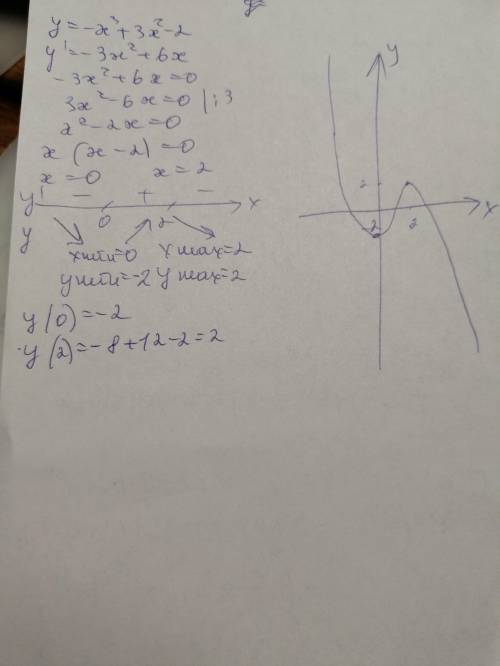 y=-x³+3x²-2
y'=-3x²+6x
-3x²+6x=0
3x²-6x=0 |:3
x²-2x=0
x(x-2)=0
x=0 x=2
y' - + - x
0 2
y
xmin=0 xmax=2
ymin=-2 ymax=2
y(0)=-2
y(2)=-8+12-2=2
y
2
x
2
-2